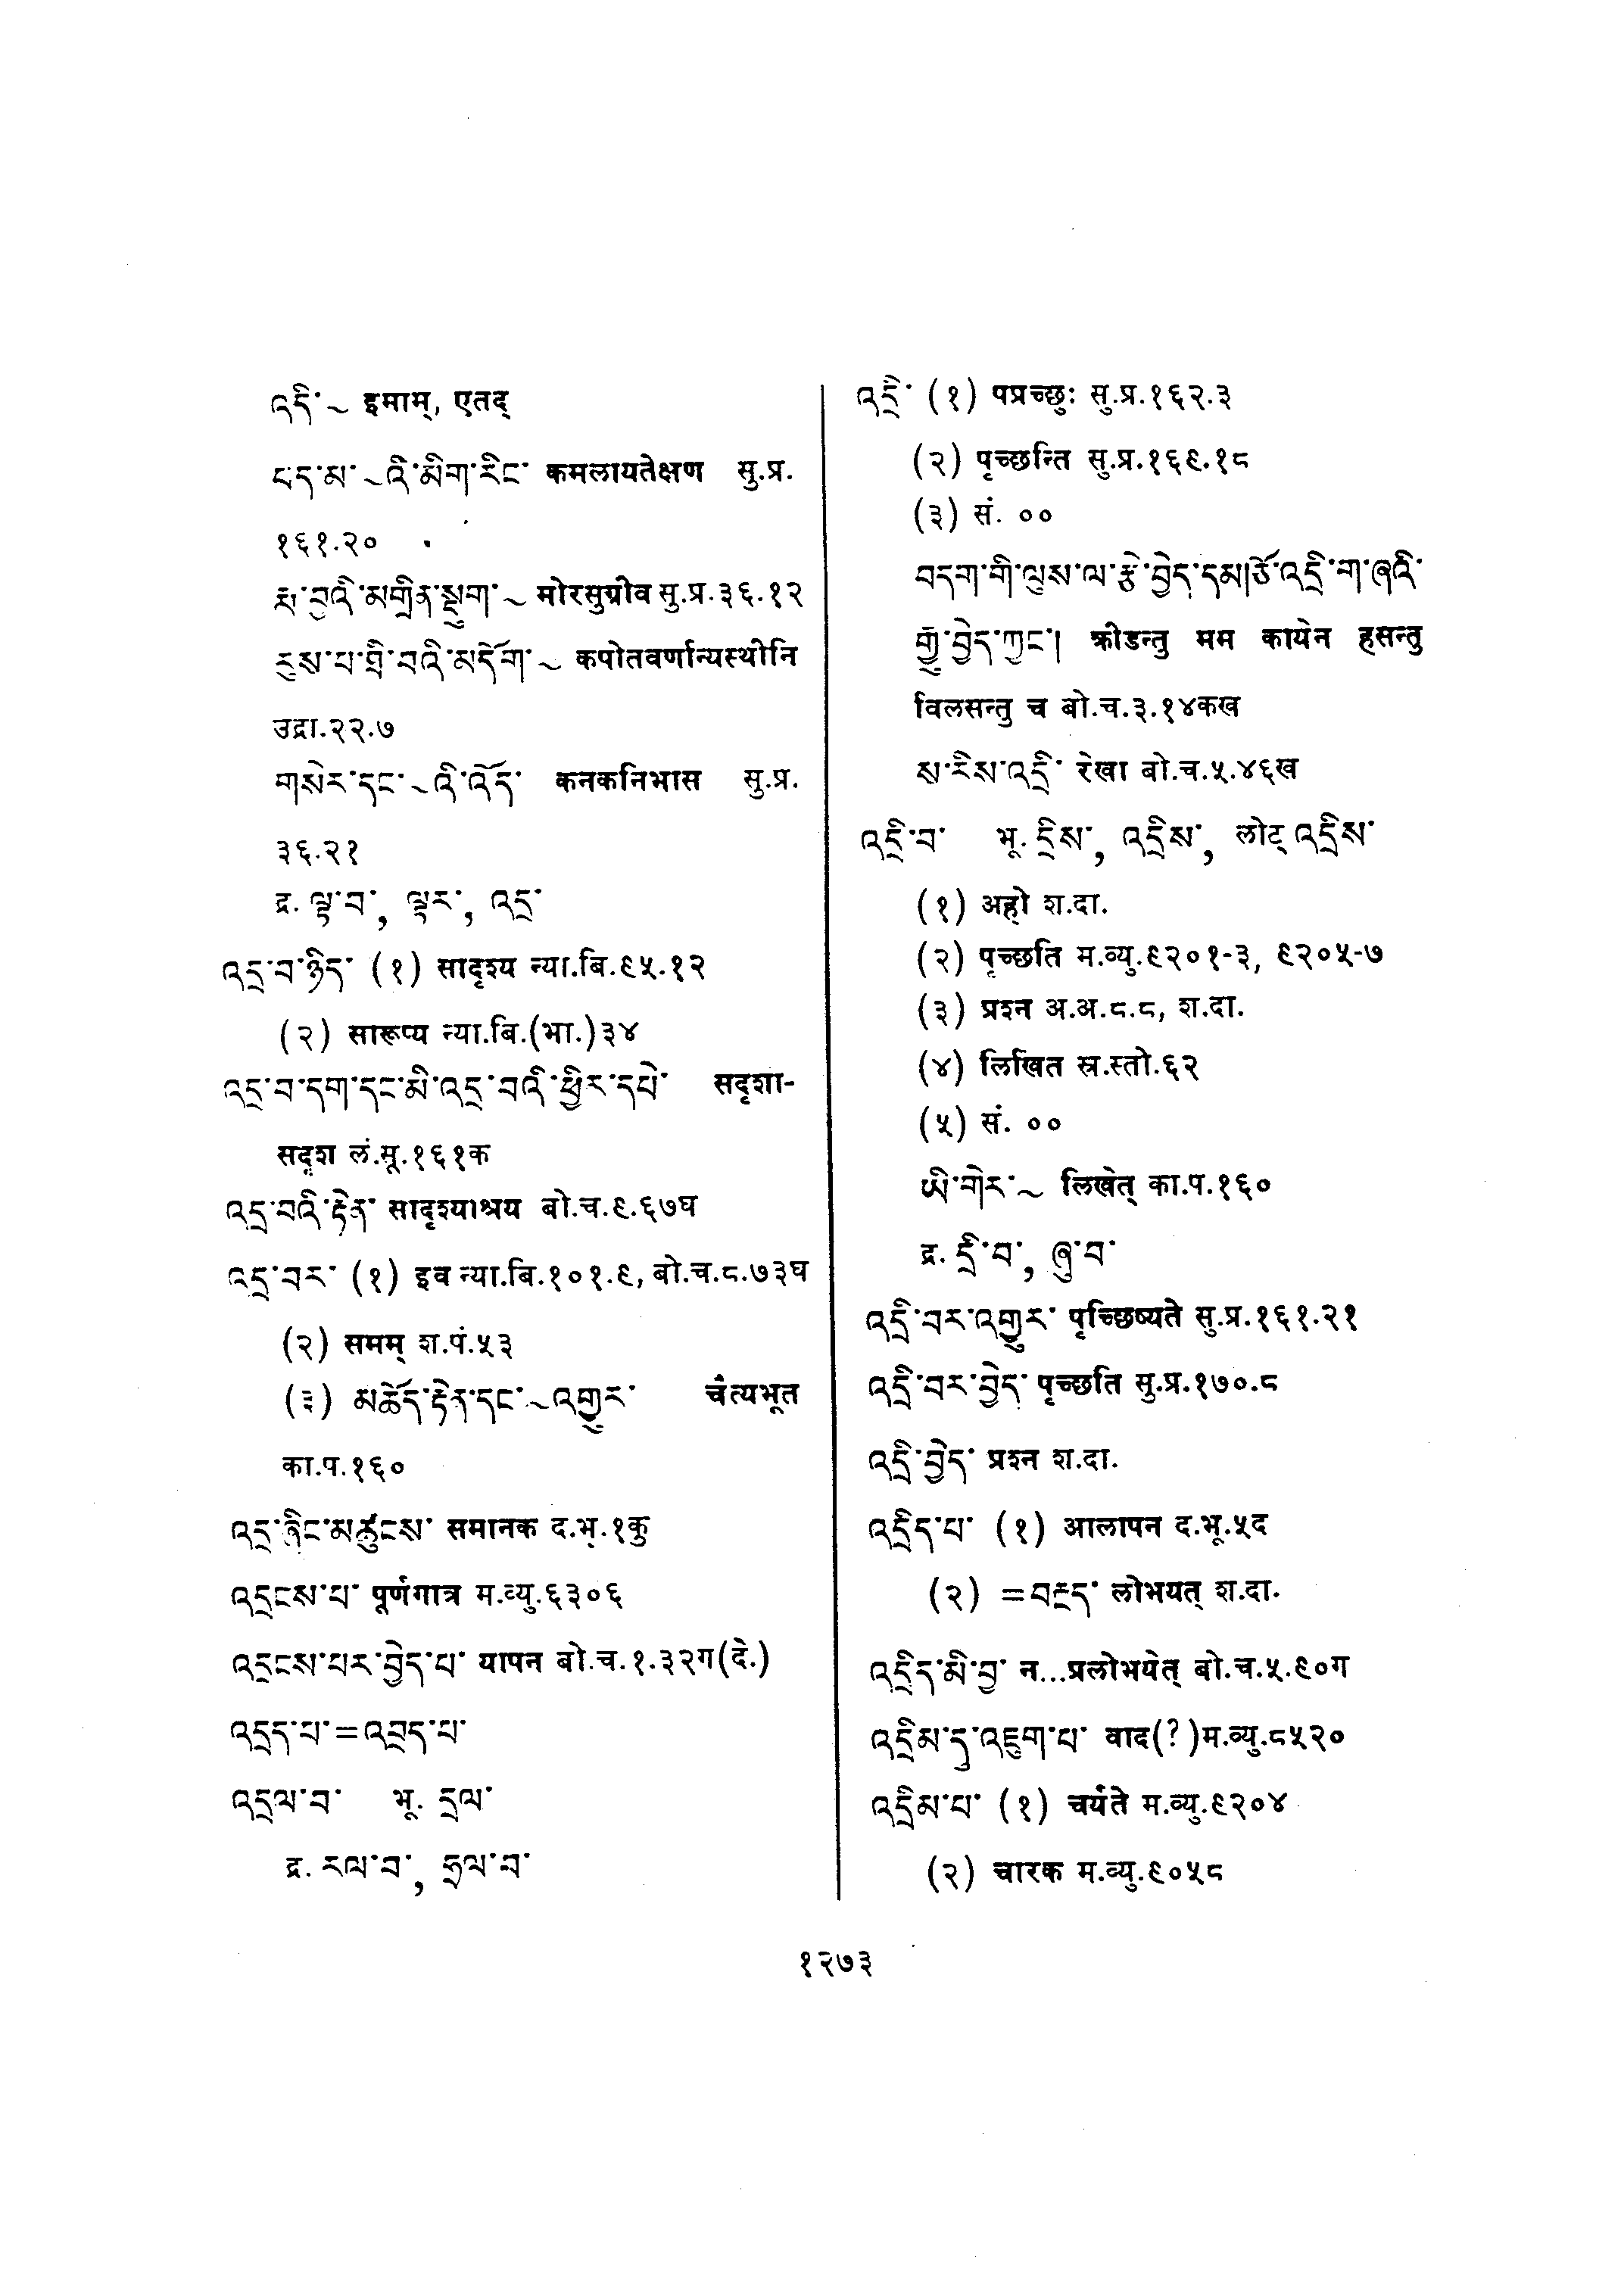 འདི་~ इमाम्, एतद्
པད་མ་~འི་མིག་རིང་ कमलायतेक्षण सु.प्र.
१६१.२०
རྨ་བྱའི་མགྲིན་སྡུག་~ मोरसुग्रीव सु.प्र.३६.१२
རུས་པ་ཐི་བའི་མདོག་~ कपोतवर्णान्यस्थीनि
उद्रा.२२.७
གསེར་དང་~འི་འོད་ कनकनिभास सु.प्र.
३६.२१
द्र. ལྟ་བ་, ལྟར་, འདྲ་
འདྲ་བ་ཉིད་ (१) सादृश्य न्या.बि.९५.१२
(२) सारूप्य न्या.बि.(भा.)३४
འདྲ་བ་དག་དང་མི་འདྲ་བའི་ཕྱིར་དཔེ་ सदृशा-
सदृश लं.सू.१६१क
འདྲ་བའི་རྟེན་ सादृश्याश्रय बो.च.९.६७घ
འདྲ་བར་ (१) इव न्या.बि.१०१.९, बो.च.८.७३घ
(२) समम् श.पं.५३
(३) མཆོད་རྟེན་དང་~འགྱུར་ चैत्यभूत
का.प.१६०
འདྲ་ཞིང་མཚུངས་ समानक द.भू.१कु
འདྲངས་པ་ पूर्णगात्र म.व्यु.६३०६
འདྲངས་པར་བྱེད་པ་ यापन बो.च.१.३२ग(दे.)
འདྲད་པ་=འབྲད་པ་
འདྲལ་བ་ भू. དྲལ་
द्र. རལ་བ་, ཧྲལ་བ་
འདྲི་ (१) पप्रच्छुः सु.प्र.१६२.३
(२) पृच्छन्ति सु.प्र.१६९.१८
(३) सं. ००
བདག་གི་ལུས་ལ་རྩེ་བྱེད་དམ།ཙོ་འདྲི་ག་ཞའི་
རྒྱུ་བྱེད་ཀྱང་། क्रीडन्तु मम कायेन हसन्तु
विलसन्तु च बो.च.३.१४कख
ས་རིས་འདྲི་ रेखा बो.च.५.४६ख
འདྲི་བ་ भू. དྲིས་, འདྲིས་, लोट् འདྲིས་
(१) अहो श.दा.
(२) पृच्छति म.व्यु.९२०१-३, ९२०५-७
(३) प्रश्न अ.अ.८.८, श.दा.
(४) लिखित स्र.स्तो.६२
(५) सं. ००
ཡི་གེར་~ लिखेत् का.प.१६०
द्र. དྲི་བ་, ཞུ་བ་
འདྲི་བར་འགྱུར་ पृच्छिष्यते सु.प्र.१६१.२१
འདྲི་བར་བྱེད་ पृच्छति सु.प्र.१७०.८
འདྲི་བྱེད་ प्रश्न श.दा.
འདྲིད་པ་ (१) आलापन द.भू.५द
(२) =བརྔད་ लोभयत् श.दा.
འདྲིད་མི་བྱ་ न...प्रलोभयेत् बो.च.५.९०ग
འདྲིམ་དུ་འཇུག་པ་ वाद(?)म.व्यु.८५२०
འདྲིམ་པ་ (१) चर्यते म.व्यु.९२०४
(२) चारक म.व्यु.९०५८
१२७३